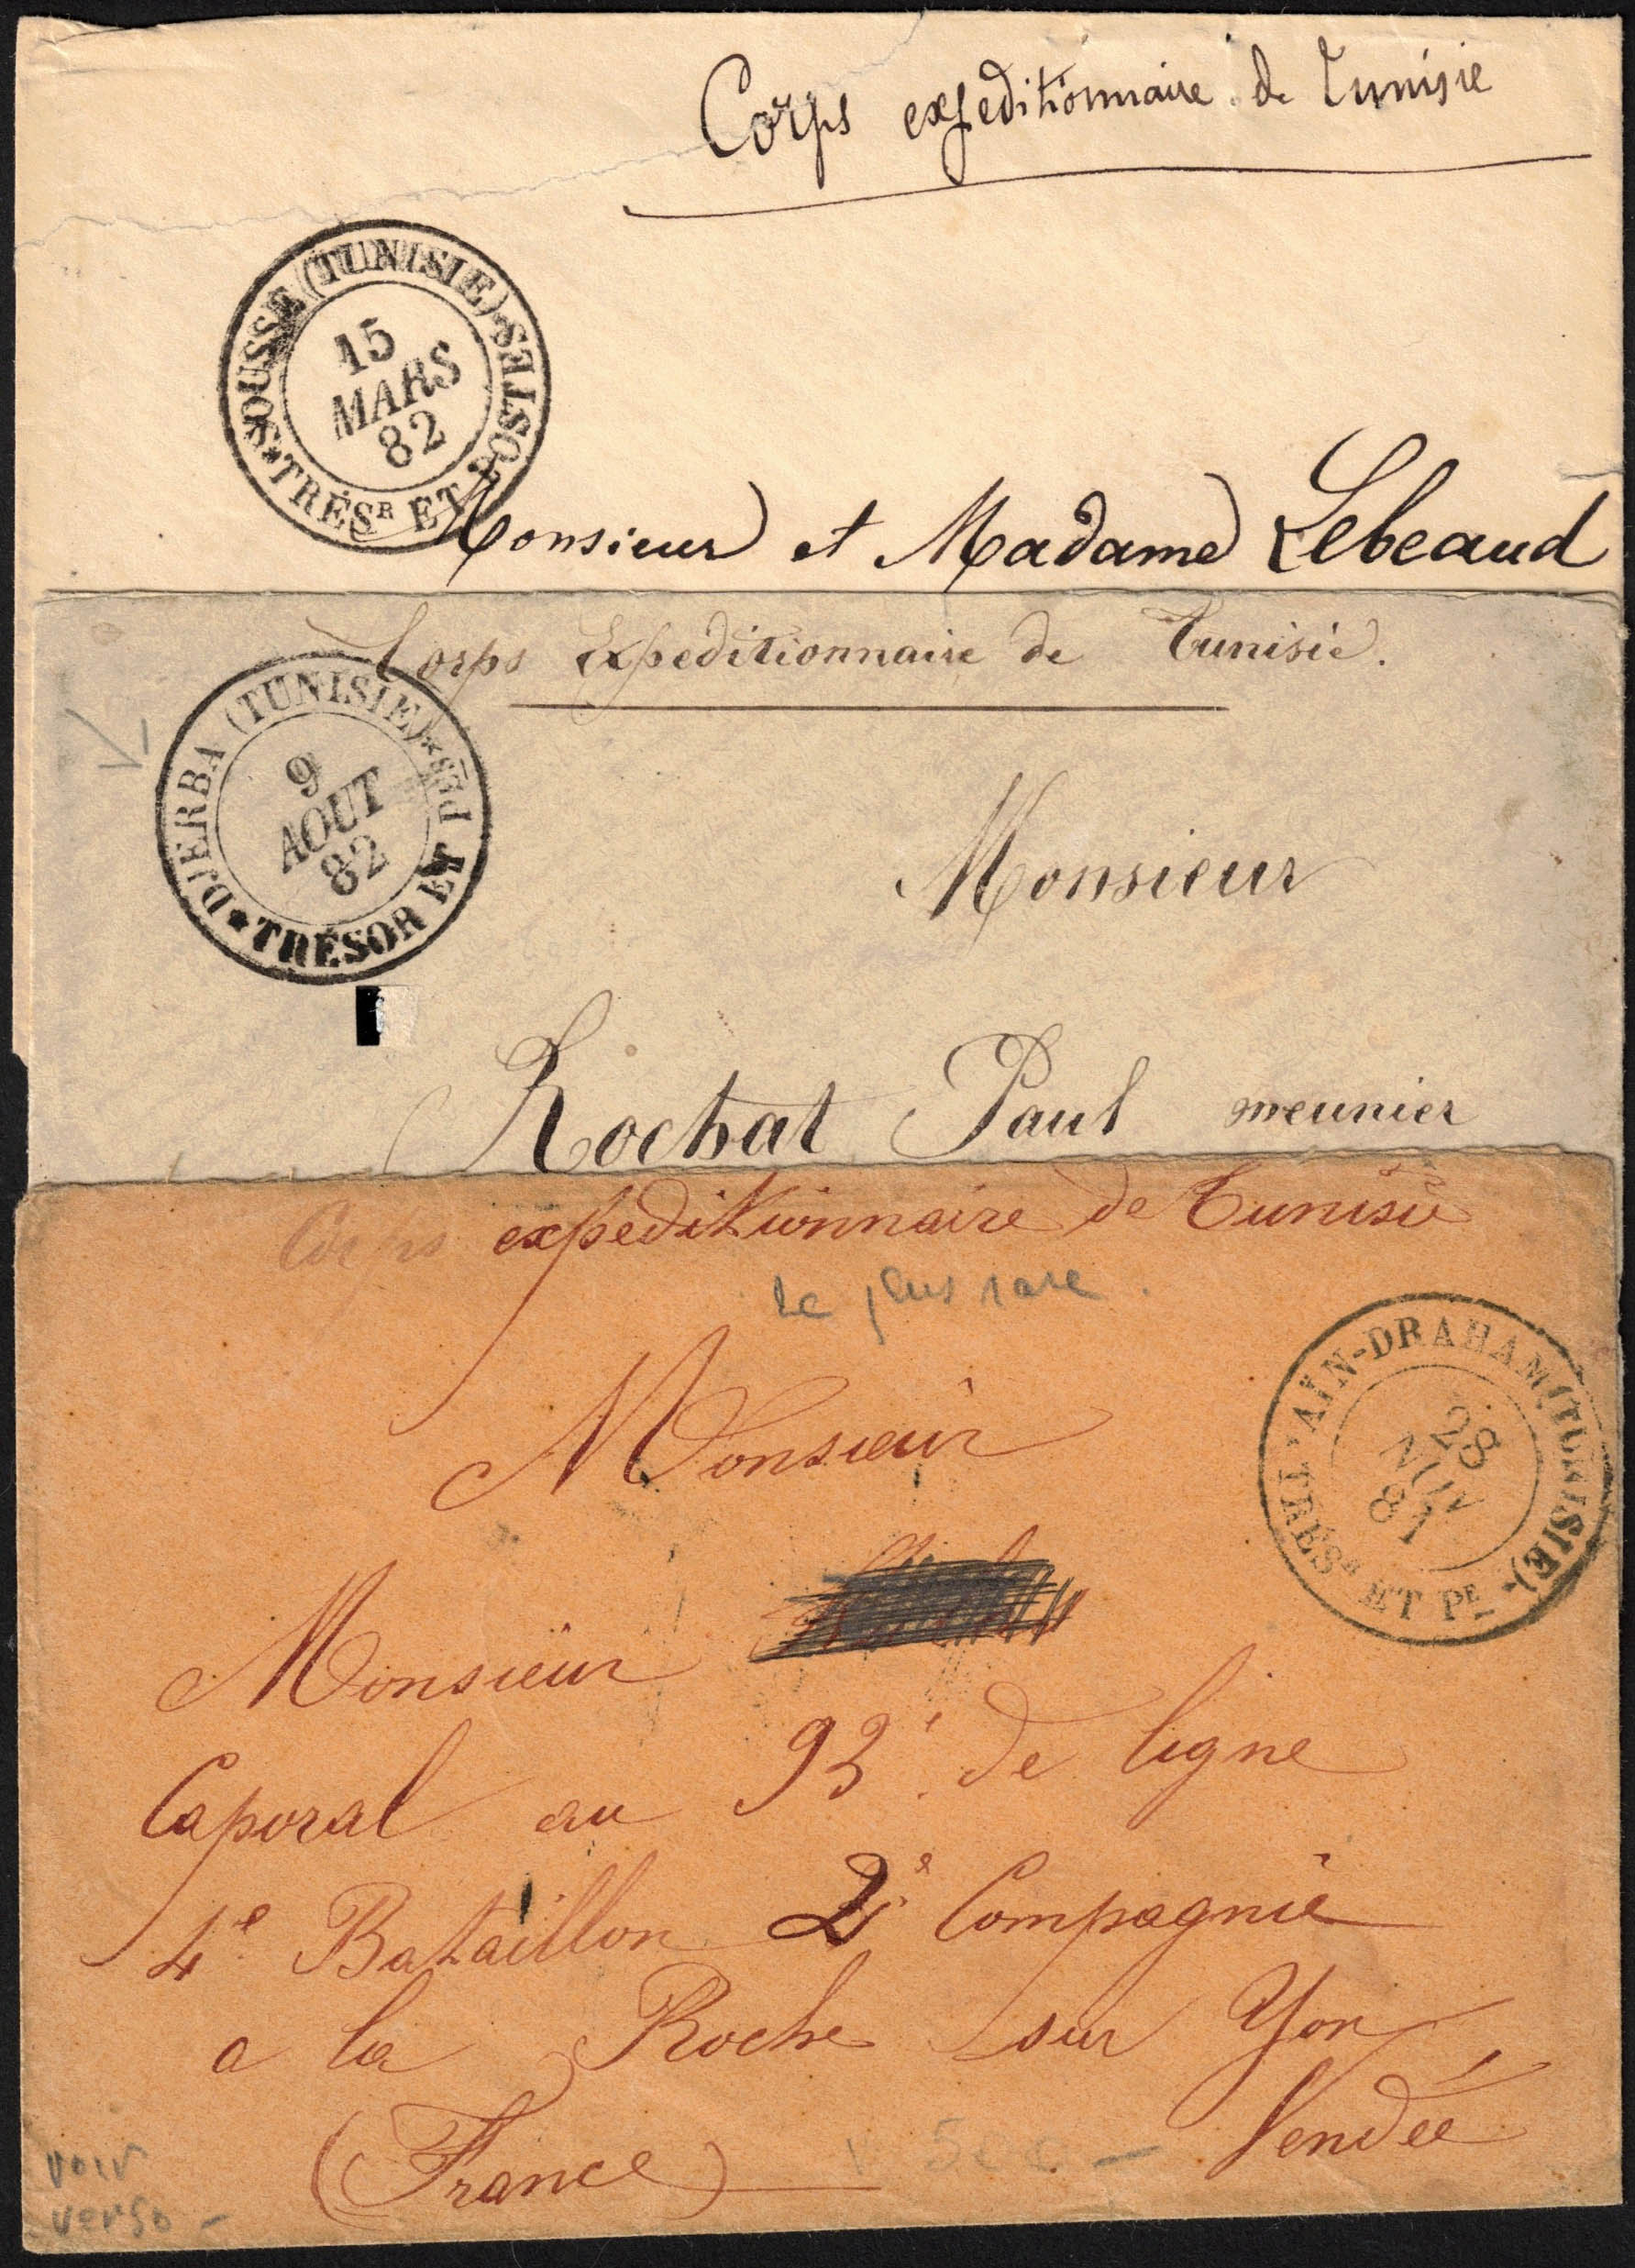 Corps expeditionnaire de Tunisie
SOUSSE (TUNISIE)
TRÉSR ET POSTES
15
MARS
82
Monsieur et Madame Lebeaud
Corps Expeditionnaire de Tunisie.
DJERBA (TUNISIE)
TRÉSOR ET PES
9
AOUT
82
Monsieur
Rochat Paul meunier
Corps expeditionnaire de Tunisie
le plus rare.
AÏN-DRAHAM (TUNISIE)
TRÉSR ET PE
28
NOV
81
Monsieur
Monsieur
Caporal au 93e de ligne
4e Bataillon 2e Compagnie
a la Roche sur Yon
Vendée
(France)
voir
verso